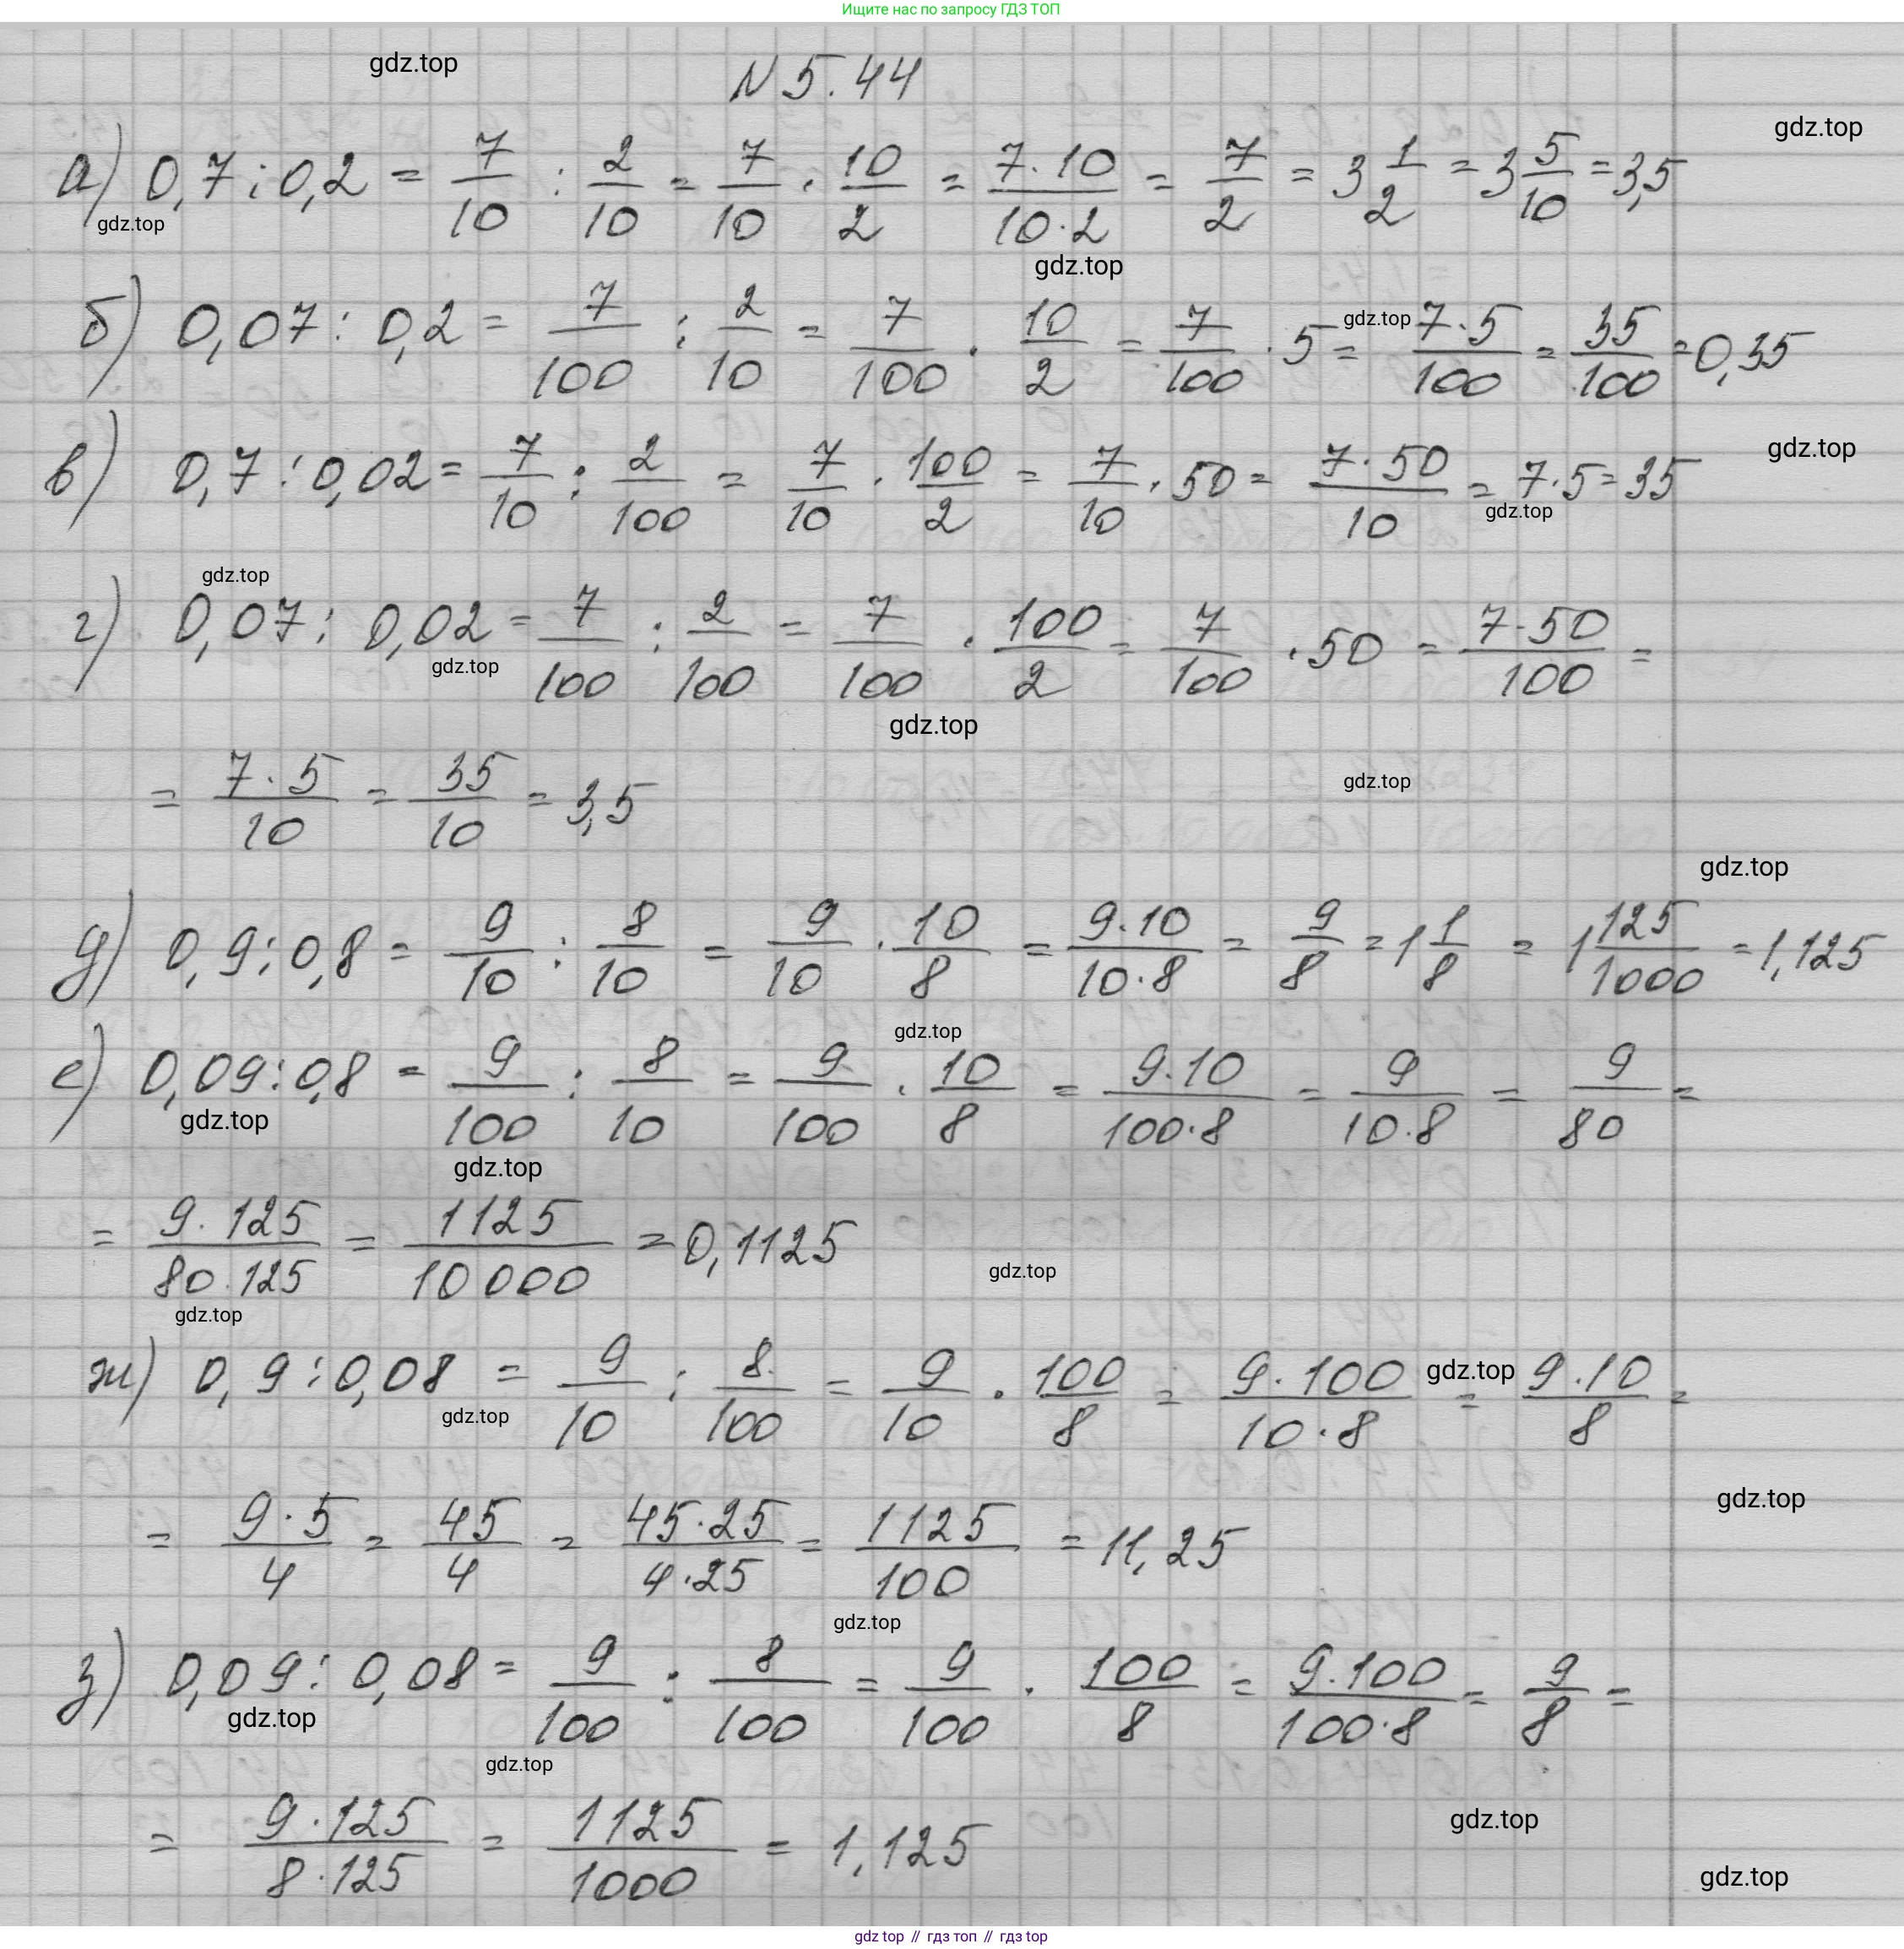 Ищите нас по запросу ГДЗ ТОП
gdz.top
N 5.44
gdz.top
а) 0,7 : 0,2 = 7/10 : 2/10 = 7/10 · 10/2 = 7·10/10·2 = 7/2 = 3 1/2 = 3 5/10 = 3,5
gdz.top
gdz.top
б) 0,07 : 0,2 = 7/100 : 2/10 = 7/100 · 10/2 = 7/100 · 5 = 7·5/100 = 35/100 = 0,35
gdz.top
gdz.top
в) 0,7 : 0,02 = 7/10 : 2/100 = 7/10 · 100/2 = 7/10 · 50 = 7·50/10 = 7·5 = 35
gdz.top
gdz.top
г) 0,07 : 0,02 = 7/100 : 2/100 = 7/100 · 100/2 = 7/100 · 50 = 7·50/100 =
gdz.top
gdz.top
= 7·5/10 = 35/10 = 3,5
gdz.top
gdz.top
д) 0,9 : 0,8 = 9/10 : 8/10 = 9/10 · 10/8 = 9·10/10·8 = 9/8 = 1 1/8 = 1 125/1000 = 1,125
gdz.top
е) 0,09 : 0,8 = 9/100 : 8/10 = 9/100 · 10/8 = 9·10/100·8 = 9/10·8 = 9/80 =
gdz.top
gdz.top
= 9·125/80·125 = 1125/10000 = 0,1125
gdz.top
gdz.top
ж) 0,9 : 0,08 = 9/10 : 8/100 = 9/10 · 100/8 = 9·100/10·8 = 9·10/8 =
gdz.top
gdz.top
gdz.top
= 9·5/4 = 45/4 = 45·25/4·25 = 1125/100 = 11,25
gdz.top
з) 0,09 : 0,08 = 9/100 : 8/100 = 9/100 · 100/8 = 9·100/100·8 = 9/8 =
gdz.top
gdz.top
= 9·125/8·125 = 1125/1000 = 1,125
gdz.top
gdz.top
gdz top // гдз топ // гдз top